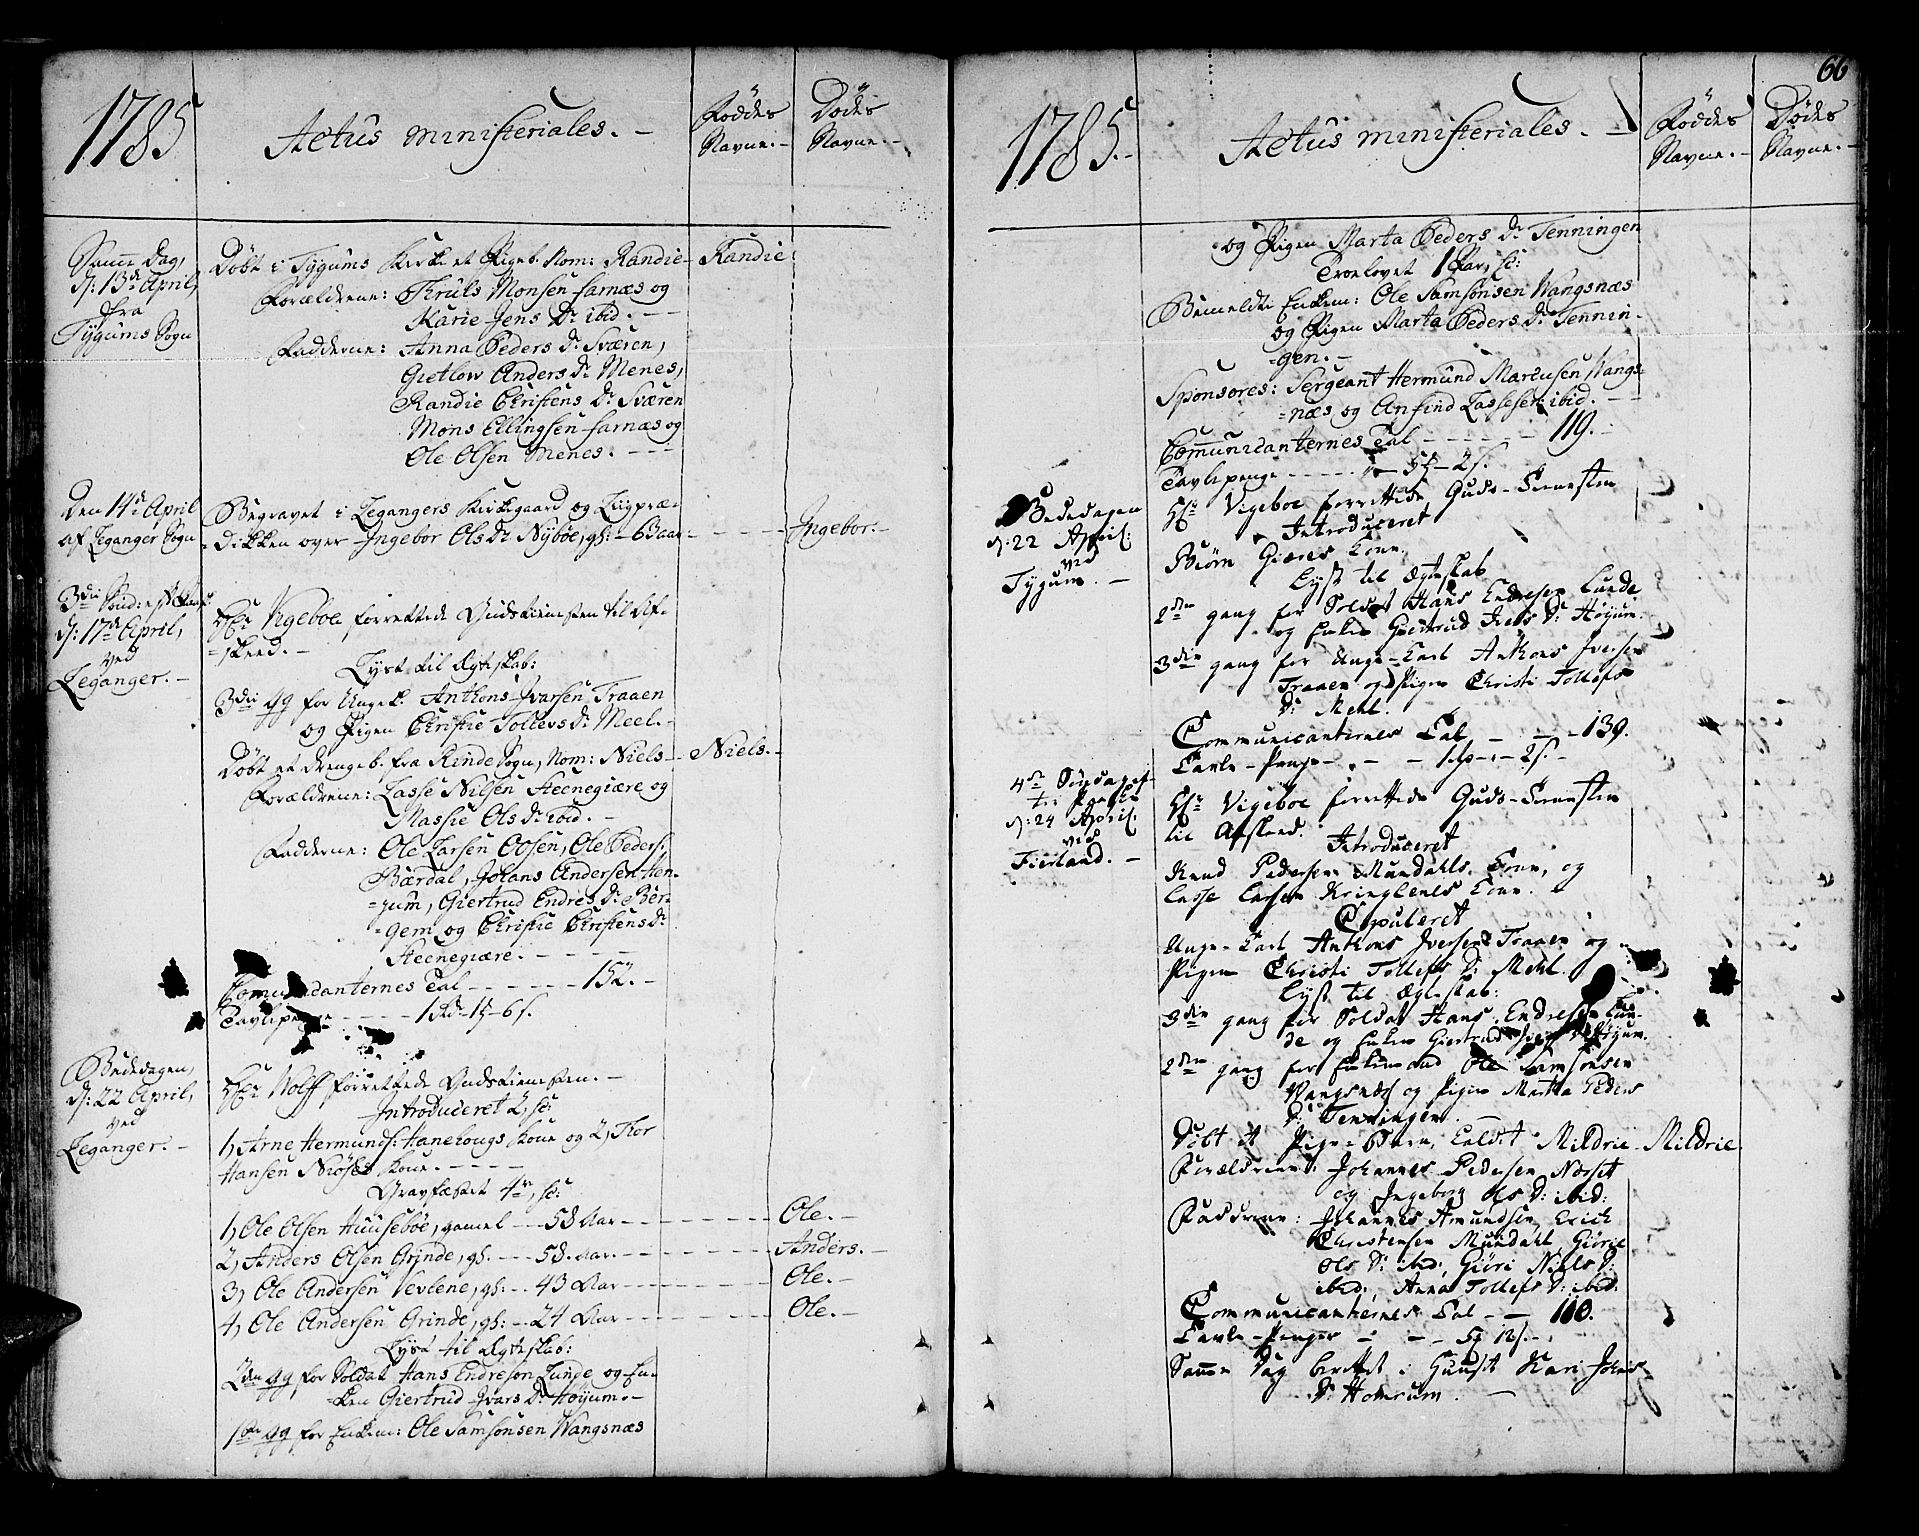 1785
Actus ministeriales. -
Föddes Navne. -
Dödes Navne. -
Samme Dag,
d: 13de April,
fra
Tygums Sogn
Döbt i Tygums Kirke et Pigeb. Nom: Randie - Randie
Forældrene: Thruls Monsen farnæs og
Karie Jens Dr ibid. - -
Fadderne: Anna Peders Dr Sværen,
Gietlow Anders Dr Menes,
Randie Christens Dr Sværen
Mons Ellingsen farnæs og
Ole Olsen Menes. - - -
Den 14de April
af Leganger Sogn
Begravet i Legangers Kirkegaard og Liigpræ-
=dikken over Ingebor Ols Dr Nybøe, gl: - 63 aar - - - - Ingebor. -
3die Sönd: est Paask
d: 17de April,
ved
Leganger. -
Hr Vigeboe forrettede Gudstienesten til Af-
=skeed. -
Lyst til Ægteskab:
3die gg for Ungek. Anthons Ivarsen Traaen
og Pigen Christie Tollevs Dr Meel. -
Döbt et drengeb. fra Rinde Sogn, Nom: Niels - Niels. -
Forældrene: Lasse Nilsen Steenegiære og
Massie Ols Dr ibid. -
Fadderne: Ole Larsen Olsen, Ole Peders:
Bærdal, Johans Andersen Hen-
=jum, Giertrud Endres Dr Ber-
=gem og Christie Christens Dr
Steenegiære. - - - -
Comunicanternes Tal - - - - - - 152. -
Tavlepenge - - - - 1 Rd - 1 - 6 s.
Bededagen,
d: 22 April,
ved
Leganger. -
Hr Wolff forrettede Gudstienesten. -
Introduceret 2, sc:
1, Arne Hermunds: Hanehougs kone og 2, Thor
Hansen Niøses kone. - - - -
Gravfæstet 4re, sc:
1, Ole Olsen Huusebøe, gamel - - - 58 Aar - - - - - - Ole. -
2, Anders Olsen Grinde, gl: - - - 58. aar. - - - - - Anders. -
3, Ole Andersen Tevlene, gl: - . 43 Aar - - - - - Ole. -
4, Ole Andersen Grinde, gl: - - 24 Aar - - - - - Ole. -
Lyst til Ægteskab:
2den gg for Soldat Hans Endreson Lunde og En-
=ken Giertrud Ivars Dr Høyum. -
1ste gg for Enkem: Ole Samsonsen Wangsnæs
66
1785. -
Actus ministeriales. -
Föddes Navne. -
Dödes Navne. -
og Pigen Marta Peders Dr Tenningen
Troelovet 1 Par, sc:
Bemeldte Enkem: Ole Samsonsen Wangsnæs
og Pigen Marta Peders Dr Tennin-
=gen. -
Sponsores: Sergeant Hermund Martusen Wangs-
=næs og Anfind Lassesen ibid. - -
Comunicanternes Tal - - - - - - 119. -
Tavlepenge - - - - . " - 5 - 2 s.
Bededagen
d: 22 April:
ved
Tygum. -
Hr Vigeboe forrettede Guds-Tienesten
Introduceret
Biørn Giæres Kone.
Lyst til Ægteskab
2den gang for Soldat Hans Endresen Lunde
og Enken Giertrud Ivers Dr Höyum.
3die gang for Unge-Karl Anthons Iversen
Traaen og Pigen Christi Tollefs
Dr Mehl.
Communicanternes Tal - - - 139.
Tavle-Penge - . - - 1 - - 2 s. -
4de Söndag ef-
ter Paaske
d: 24 April.
ved
Fierland. -
Hr Vigeboe forrettede Guds-Tienesten
til Afskeed. Introduceret
Knud Pedersen Mundahls Kone, og
Lasse Larsen Kone.
Copuleret
Unge-Karl Anthons Iversen Traaen og
Pigen Christi Tollefs Dr Mehl.
Lyst til Ægteskab:
3die gang for Soldat Hans Endresen Lun-
de og Enken Giertrud Ivers Dr Höyum.
2den gang for Enkemand Ole Samsonsen
Vangsnæs og Pigen Martha Peders
Dr Tenningen.
Döbt et Pige-Barn, kaldet Mildrie Mildrie
Forældrene: Johannes Pedersen Nosset
og Ingeborg Ols Dr ibid:
Faddrene: Johannes Amundsen, Erich
Christensen Mundahl, Giörie
Ols Dr ibid, Giöri Niels Dr
ibid:, Anna Tollefs Dr ibid:
Communicanternes Tal - - 110.
Tavle-Penger - - - 5 12 s. - .
Samme Dag Guust Kari Johns
Dr Homrum. -